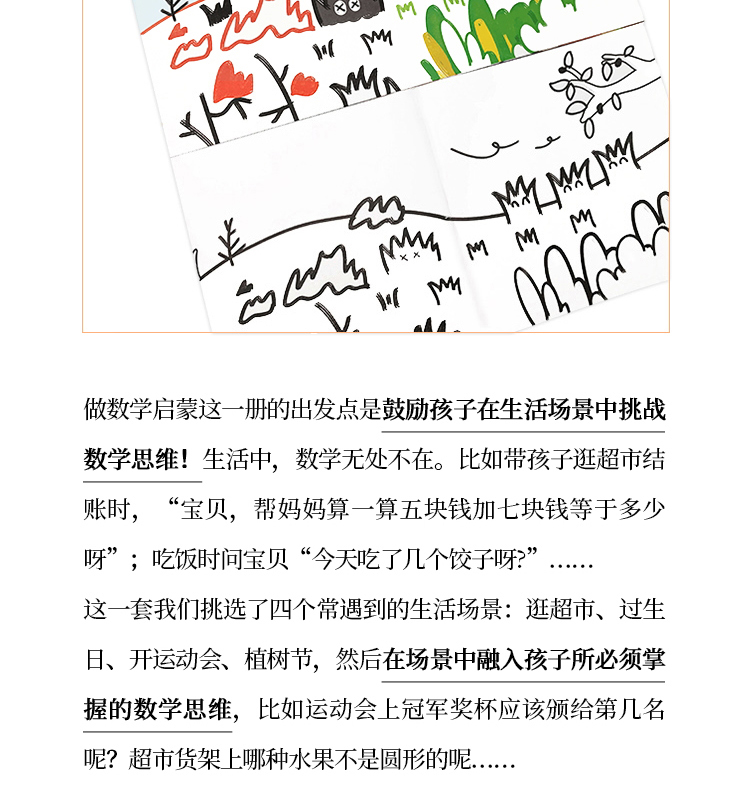 做数学启蒙这一册的出发点是鼓励孩子在生活场景中挑战
数学思维！生活中，数学无处不在。比如带孩子逛超市结
账时，“宝贝，帮妈妈算一算五块钱加七块钱等于多少
呀”；吃饭时问宝贝“今天吃了几个饺子呀?”……
这一套我们挑选了四个常遇到的生活场景：逛超市、过生
日、开运动会、植树节，然后在场景中融入孩子所必须掌
握的数学思维，比如运动会上冠军奖杯应该颁给第几名
呢？超市货架上哪种水果不是圆形的呢……